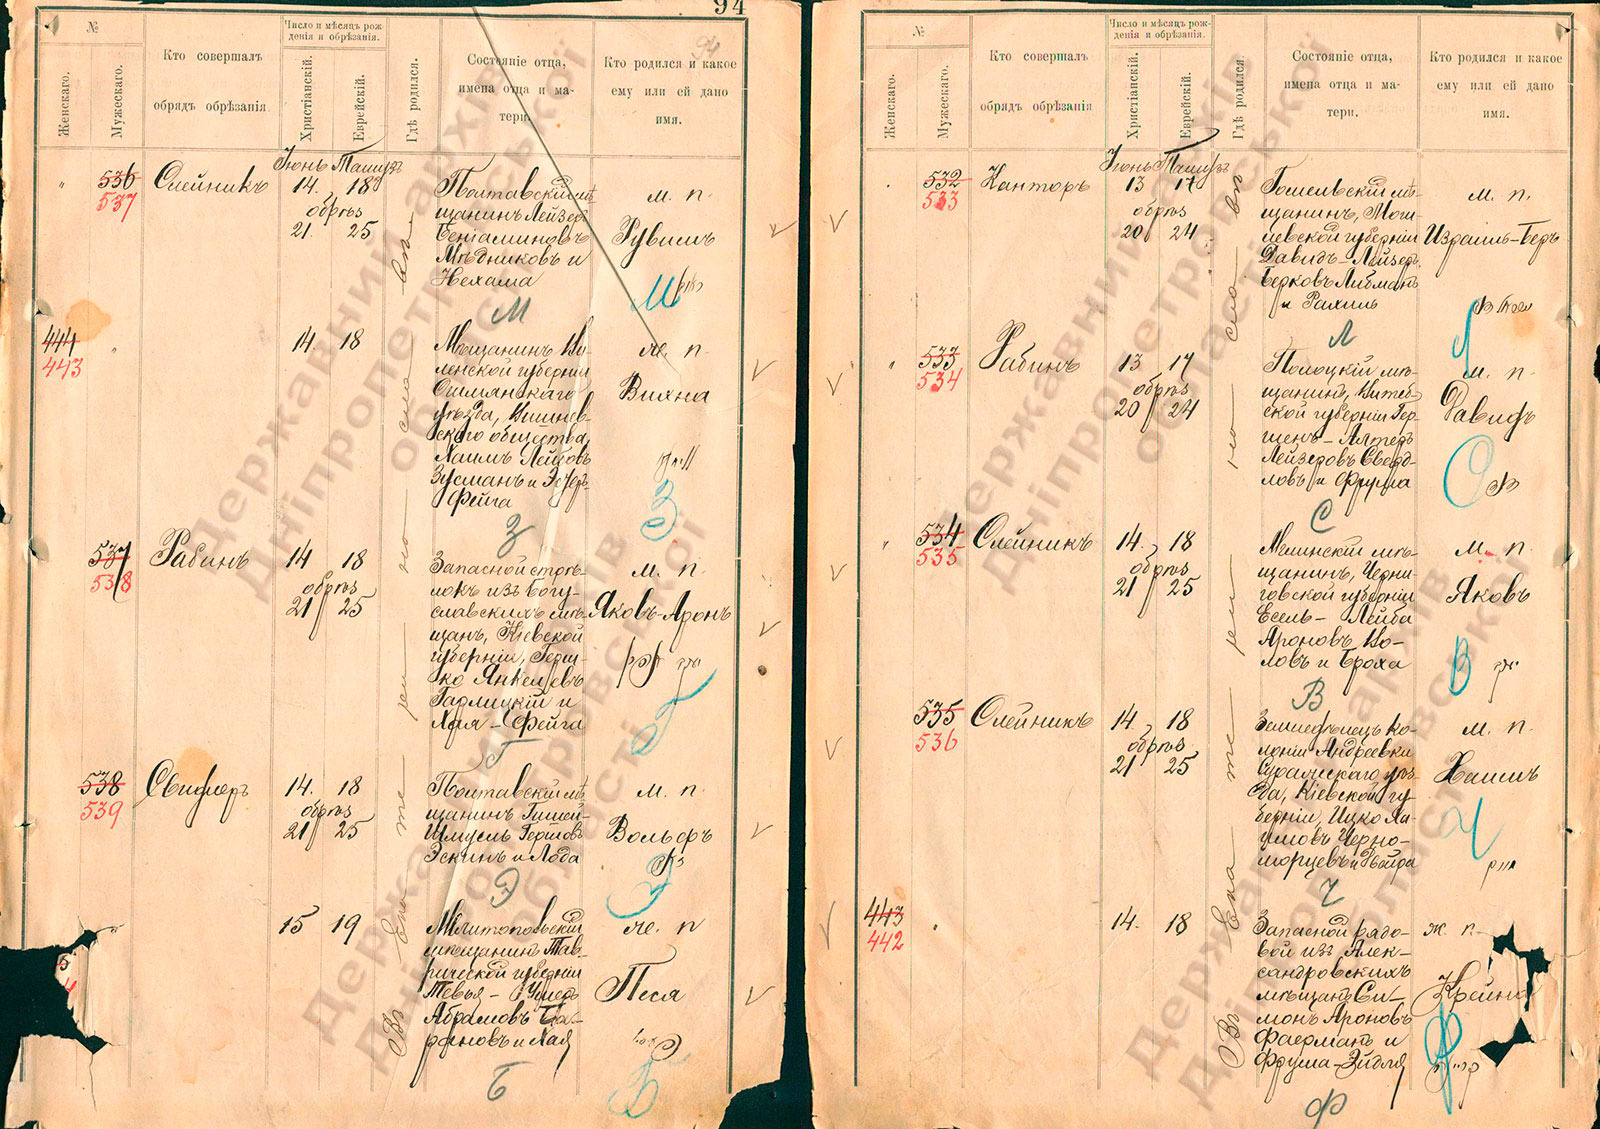 94
94
№
Женскаго.
Мужескаго.
Кто совершалъ
обрядъ обрѣзанія.
Число и мѣсяцъ рож-
денія и обрѣзанія.
Христіанскій.
Еврейскій.
Гдѣ родился.
Состояніе отца,
имена отца и ма-
тери.
Кто родился и какое
ему или ей дано
имя.
Іюнь Тамузъ
536
537
Олейникъ
14. 18
обрѣз
21. 25
Полтавскій мѣ
щанинъ Лейзеръ
Беніаминовъ
Мѣдниковъ и
Нехама
м. п.
Рувимъ
М
М
444
443
14 18
Мѣщанинъ Ви-
ленской губерніи
Ошмянскаго
уѣзда, Вишнев-
скаго общества,
Хаимъ Лейбовъ
Зусманъ и Эстеръ-
Фейга
ж. п.
Вихна
З
З
537
538
Рабинъ
14 18
обрѣз
21 25
Запасной стрѣ-
локъ изъ Богу-
славскихъ мѣ-
щанъ, Кіевской
губерніи, Герш-
ко Янкелевъ
Гарлицкій и
Хая-Фейга
м. п.
Яковъ-Аронъ
Г
Г
538
539
Свидлеръ
14. 18
обрѣз
21 25
Полтавскій мѣ
щанинъ
Шмуель Гершовъ
Эскинъ и Лода
м. п.
Вольфъ
Э
Э
15 19
Мелитопольскій
мѣщанинъ Тав-
рической губерніи
Тевья-
Абрамовъ Ба-
рановъ и Хая
ж. п
Песя
Б
Б
Въ Екатеринославѣ
№
Женскаго.
Мужескаго.
Кто совершалъ
обрядъ обрѣзанія
Число и мѣсяцъ рож-
денія и обрѣзанія.
Христіанскій.
Еврейскій.
Гдѣ родился.
Состояніе отца,
имена отца и ма-
тери.
Кто родился и какое
ему или ей дано
имя.
Іюнь Тамузъ
532
533
Канторъ
13 17
обрѣз
20 24
Гомельскій мѣ-
щанинъ, Моги-
левской губерніи
Давидъ-Лейзеръ
Берковъ Либманъ
и Рахиль
м. п.
Израиль-Беръ
Л
Л
533
534
Рабинъ
13 17
обрѣз
20 24
Полоцкій мѣ-
щанинъ, Витеб-
ской губерніи Гер-
шенъ-Алтеръ
Лейзеровъ Сверд-
ловъ и Фрума
м. п.
Давидъ
С
С
534
535
Олейникъ
14. 18
обрѣз
21 25
Мглинскій мѣ-
щанинъ, Черни-
говской губерніи
Есель-Лейба
Ароновъ Во-
ловъ и Броха
м. п.
Яковъ
В
В
535
536
Олейникъ
14. 18
обрѣз
21 25
Земледѣлецъ ко-
лоніи Андреевки
уѣз-
да, Кіевской гу-
берніи, Ицко Ха-
имовъ Черно-
морцевъ и Двейра
м. п.
Хаимъ
Ч
Ч
443
442
14. 18
Запасной рядо-
вой изъ Алек-
сандровскихъ
мѣщанъ Си-
монъ Ароновъ
Фаерманъ и
Фрума-Эйдля
ж. п.
Крейна
Ф
Ф
Державний архів
Дніпропетровської
області